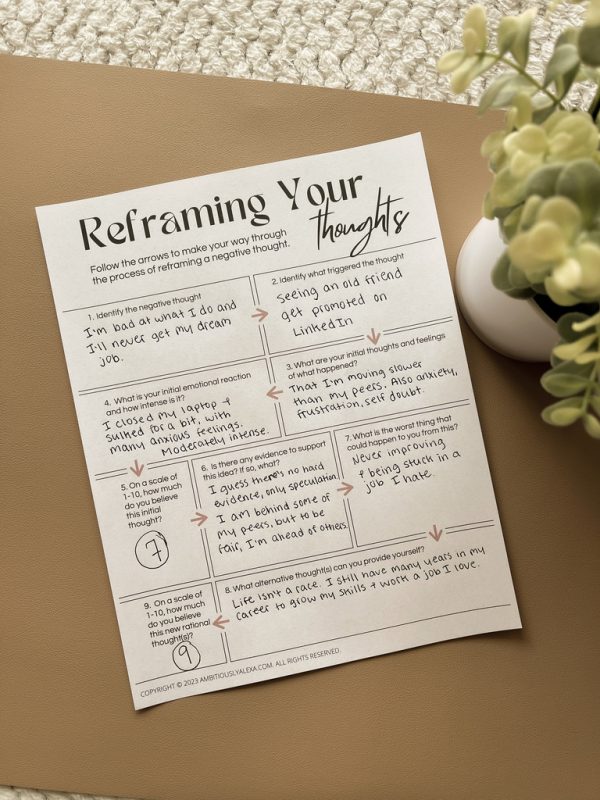 Reframing Your
thoughts
Follow the arrows to make your way through
the process of reframing a negative thought.
1. Identify the negative thought
I'm bad at what I do and
I'll never get my dream
job.
2. Identify what triggered the thought
seeing an old friend
get promoted on
LinkedIn
3. What are your initial thoughts and feelings
of what happened?
That I'm moving slower
than my peers. Also anxiety,
frustration, self doubt.
4. What is your initial emotional reaction
and how intense is it?
I closed my laptop +
sulked for a bit, with
many anxious feelings.
Moderately intense.
5. On a scale of
1-10, how much
do you believe
this initial
thought?
7
6. Is there any evidence to support
this idea? If so, what?
I guess there's no hard
evidence, only speculation.
I am behind some of
my peers, but to be
fair, I'm ahead of others.
7. What is the worst thing that
could happen to you from this?
Never improving
+ being stuck in a
job I hate.
8. What alternative thought(s) can you provide yourself?
Life isn't a race. I still have many years in my
career to grow my skills + work a job I love.
9. On a scale of
1-10, how much
do you believe
this new rational
thought(s)?
9
COPYRIGHT © 2023 AMBITIOUSLYALEXA.COM. ALL RIGHTS RESERVED.